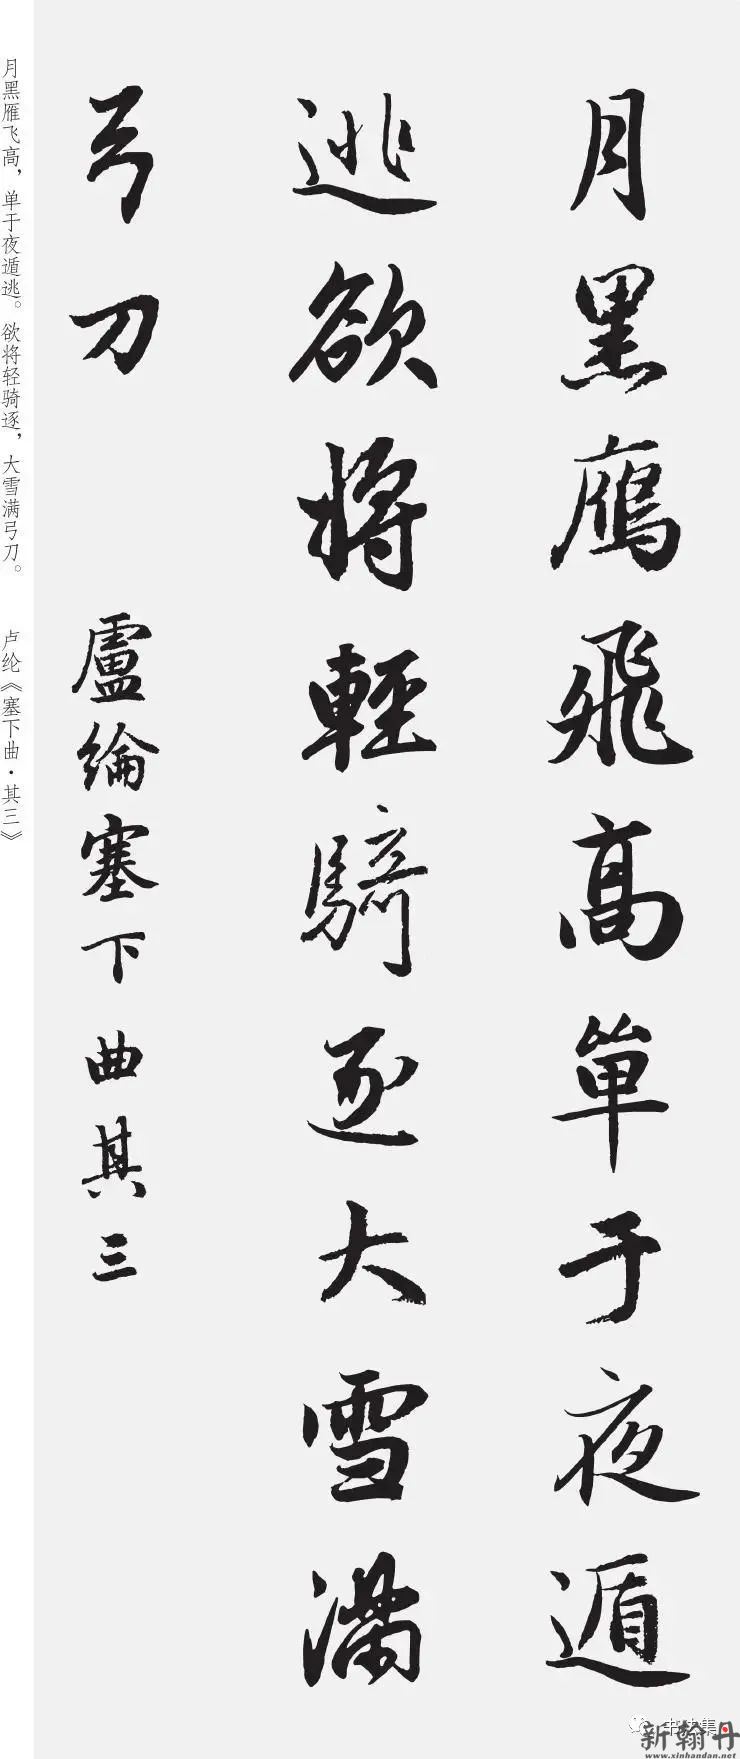 月黑鴈飛高單于夜遁
逃欲將輕騎逐大雪滿
弓刀
盧綸塞下曲其三
月黑雁飞高，单于夜遁逃。欲将轻骑逐，大雪满弓刀。 卢纶《塞下曲·其三》
新翰丹
www.xinhandan.net